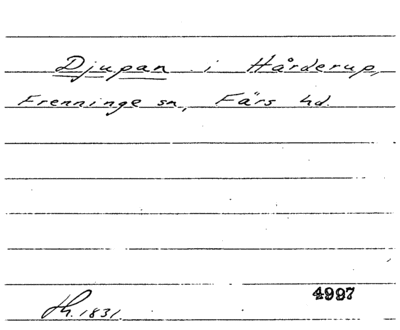 Djupan i Hårderup,
Frenninge sn, Färs hd.
4997
Th. 1831